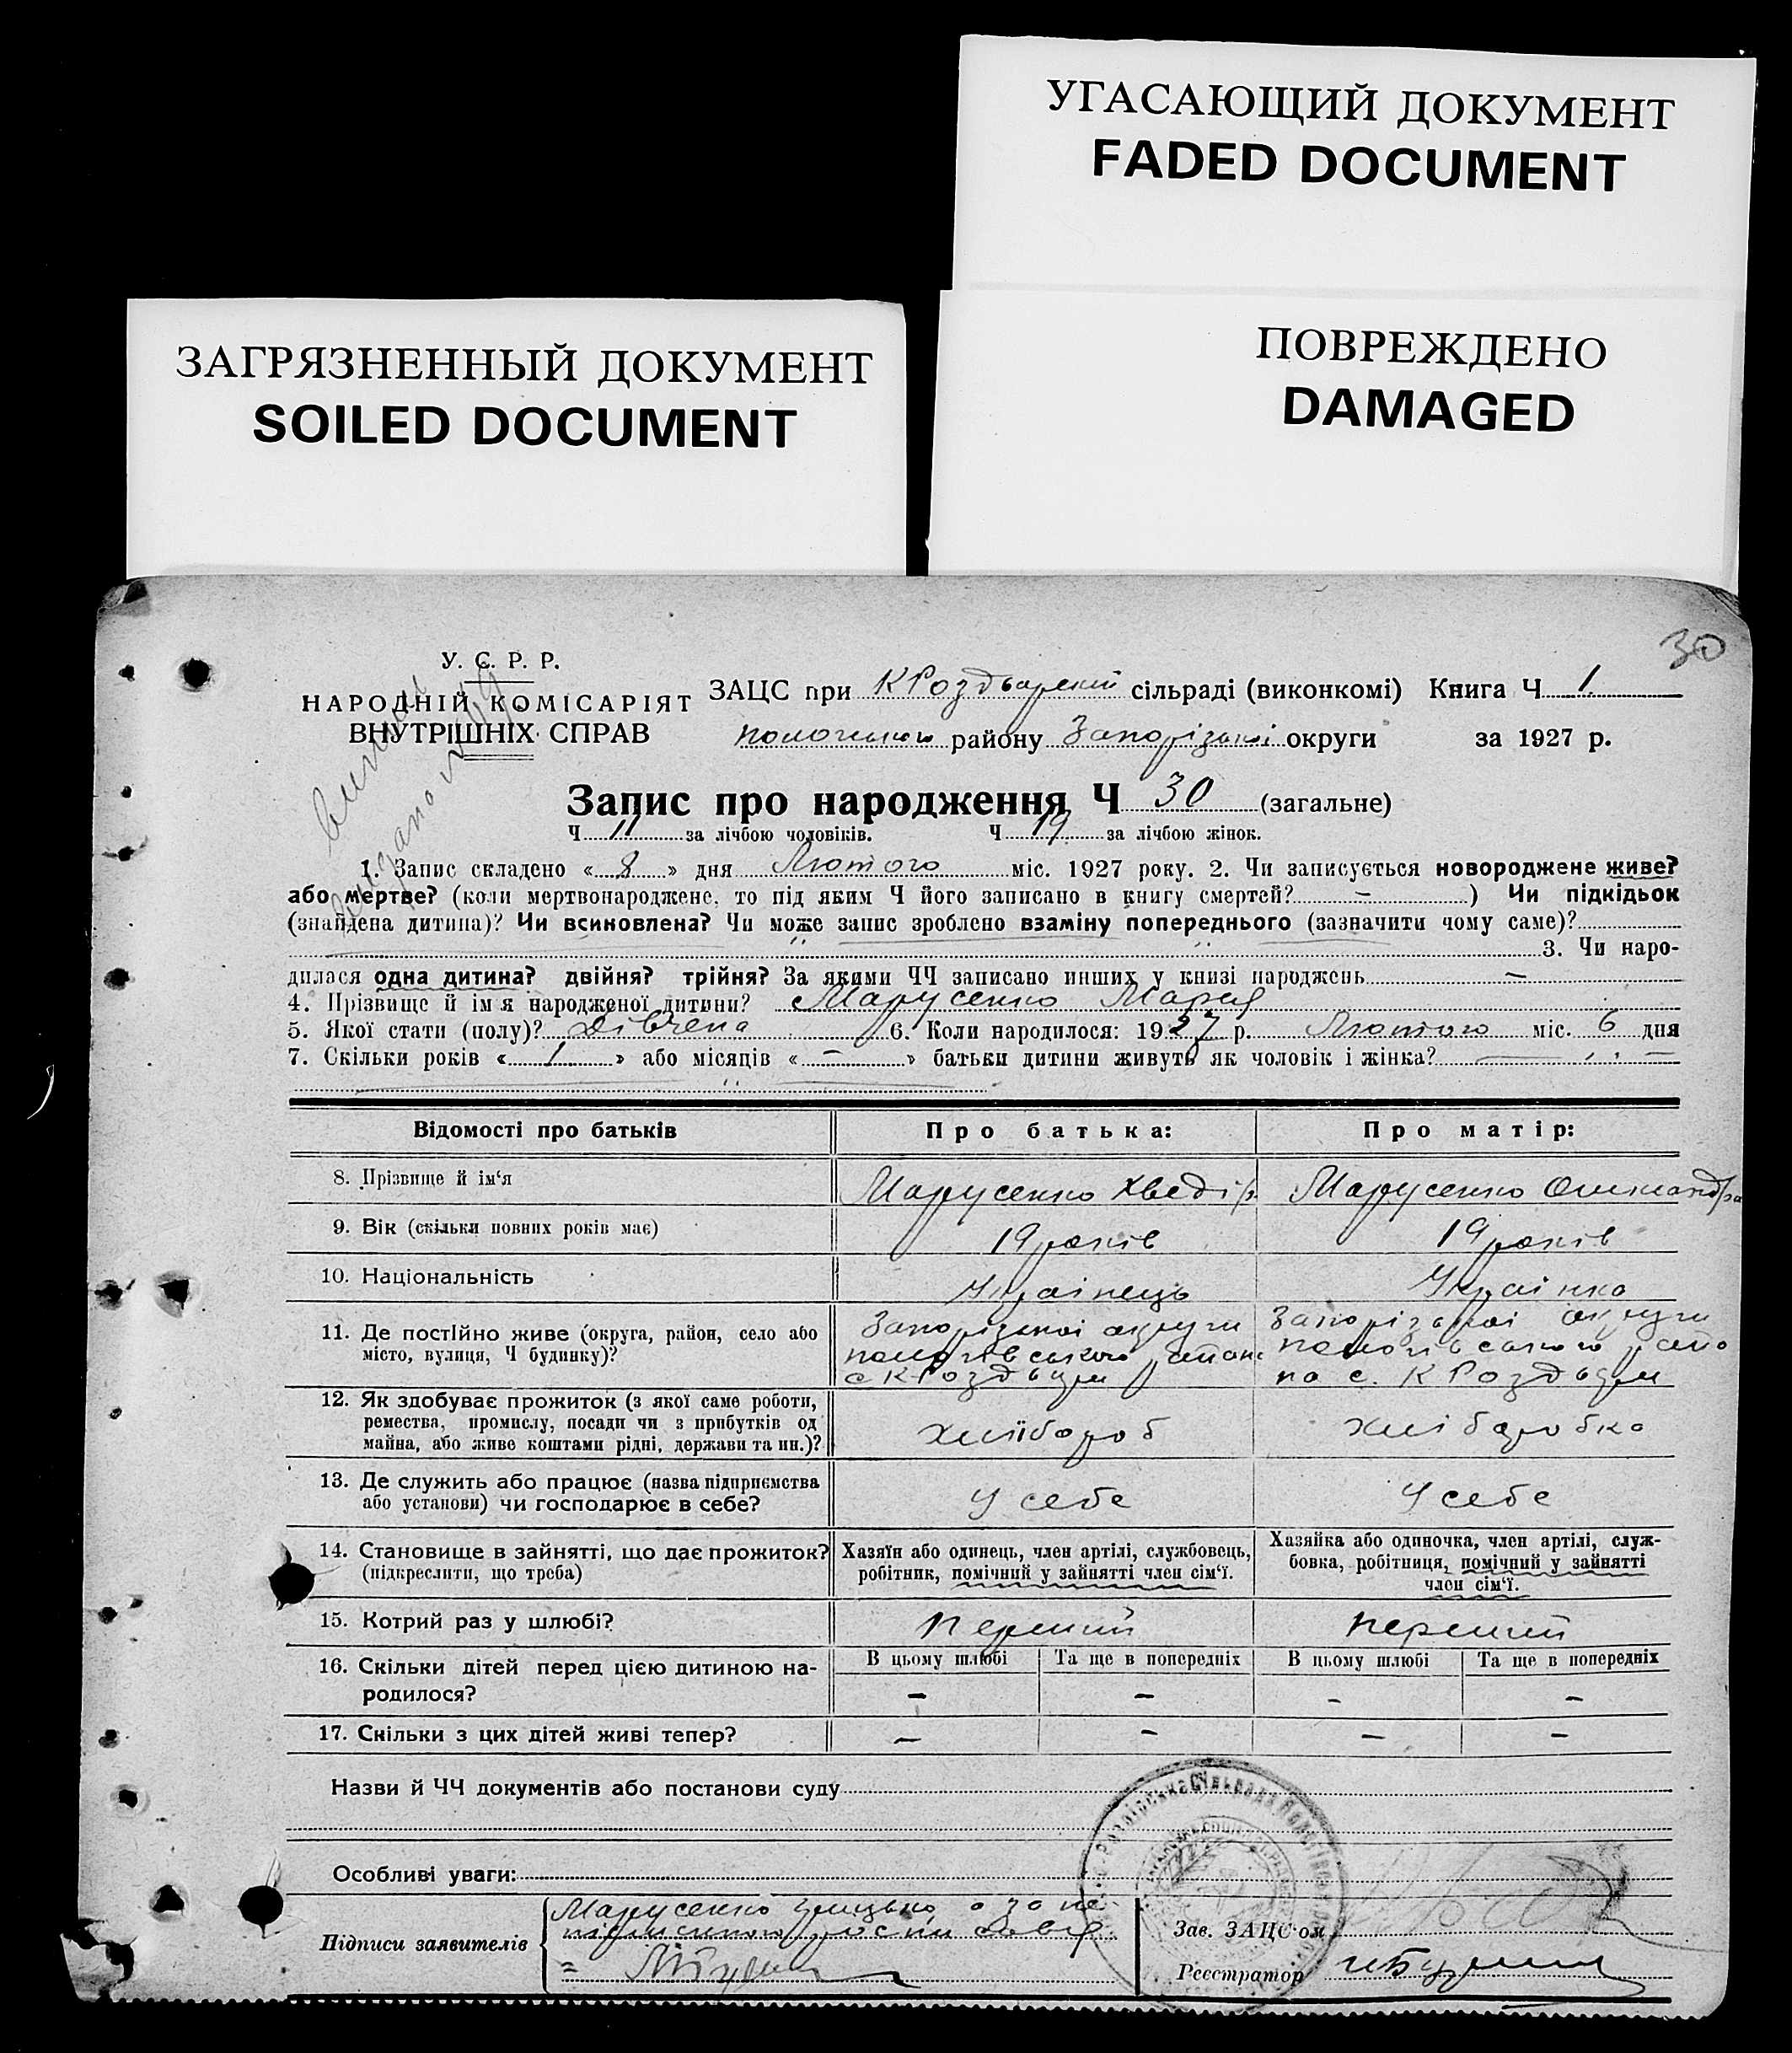 УГАСАЮЩИЙ ДОКУМЕНТ
FADED DOCUMENT
ЗАГРЯЗНЕННЫЙ ДОКУМЕНТ
SOILED DOCUMENT
ПОВРЕЖДЕНО
DAMAGED
30
У. С. Р. Р.
НАРОДНІЙ КОМІСАРІЯТ
ВНУТРІШНІХ СПРАВ
ЗАЦС при К Роздварский сільраді (виконкомі) Книга Ч 1.
району Запорізької округи за 1927 р.
Запис про народження Ч 30 (загальне)
Ч 11 за лічбою чоловіків. Ч 19 за лічбою жінок.
1. Запис складено « 8 » дня Лютого міс. 1927 року. 2. Чи записується новороджене живе?
або мертве? (коли мертвонароджене, то під яким Ч його записано в книгу смертей? — ) Чи підкідьок
(знайдена дитина)? Чи всиновлена? Чи може запис зроблено взаміну попереднього (зазначити чому саме)?
3. Чи наро-
дилася одна дитина? двійня? трійня? За якими ЧЧ записано инших у книзі народжень —
4. Прізвище й ім'я народженої дитини? Марусенко Мария
5. Якої стати (полу)? Дівчена 6. Коли народилося: 1927 р. Лютого міс. 6 дня
7. Скільки років « 1 » або місяців « — » батьки дитини живуть як чоловік і жінка?
Відомості про батьків Про батька: Про матір:
8. Прізвище й ім'я Марусенко Хведір Марусенко Олександра
9. Вік (скільки повних років має) 19 років 19 років
10. Національність Українець Українка
11. Де постійно живе (округа, район, село або Запорізької округи Запорізької округи
місто, вулиця, Ч будинку)?
12. Як здобуває прожиток (з якої саме роботи,
ремества, промислу, посади чи з прибутків од хлібороб хліборобка
майна, або живе коштами рідні, держави та ин.)?
13. Де служить або працює (назва підприємства У себе У себе
або установи) чи господарює в себе?
14. Становище в зайнятті, що дає прожиток? Хазяїн або одинець, член артілі, службовець, Хазяйка або одиночка, член артілі, служ-
(підкреслити, що треба) робітник, помічний у зайнятті член сім'ї. бовка, робітниця, помічний у зайнятті
член сім'ї.
15. Котрий раз у шлюбі? Перший перший
16. Скільки дітей перед цією дитиною на- В цьому шлюбі Та ще в попередніх В цьому шлюбі Та ще в попередніх
родилося? — — — —
17. Скільки з цих дітей живі тепер? — — — —
Назви й ЧЧ документів або постанови суду
Особливі уваги:
Марусенко
Підписи заявителів
Зав. ЗАЦС'ом
Реєстратор